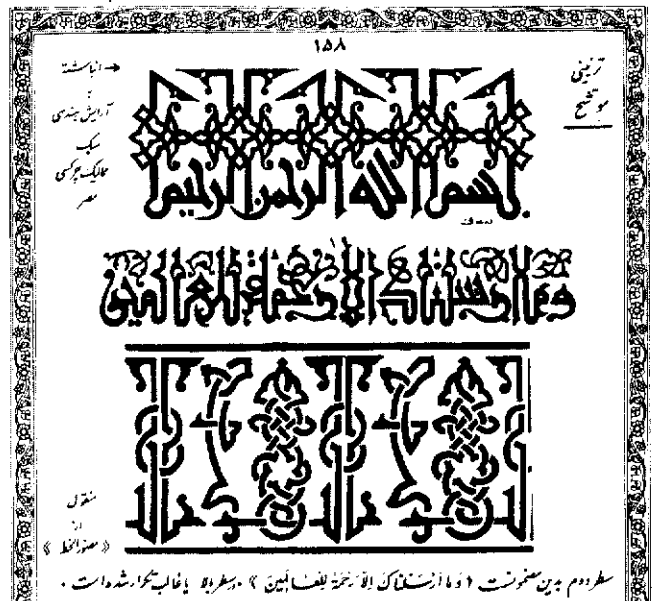 ۱۵۸
تزئینی
موشح
← انباشته
و
آرایش هندسی
سبک
ممالیک چرکسی
مصر
بسم الله الرحمن الرحیم
وما ارسلناك الا رحمة للعالمين
منقول
از
« مصور الخط »
سطر دوم بدین مضمونست ( وَ ما أَرْسَلْناكَ إِلاّ رَحْمَةً لِلْعٰالَمینَ ) . سطر بالا یاغالب تکرار شده است .